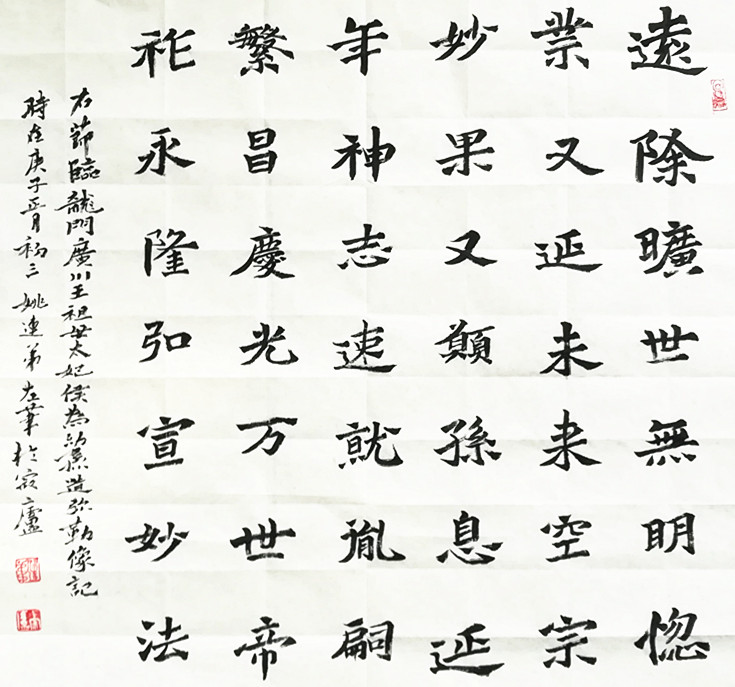 遠除曠世無明惚
業又延未来空宗
妙果又願孫息延
年神志速就胤嗣
繁昌慶光万世帝
祚永隆弘宣妙法
右節臨龍門廣川王祖母太妃侯為幼孫造弥勒像記
時在庚子正月初三姚連弟左筆於寂廬